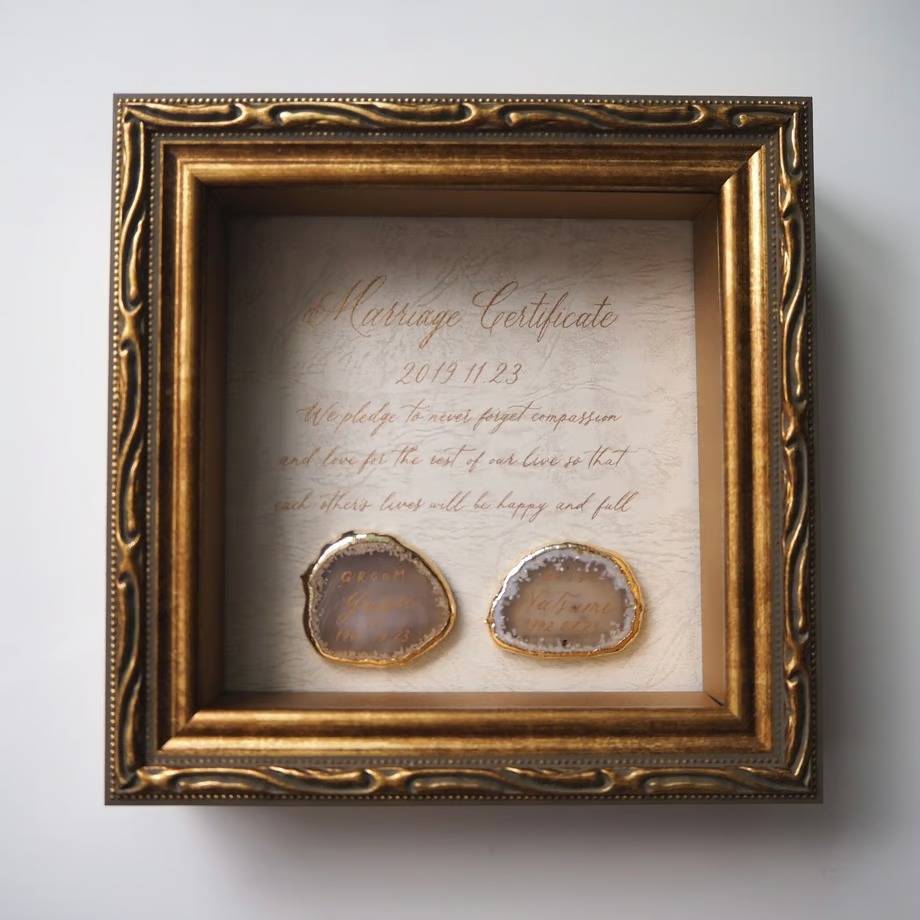 Marriage Certificate
2019 11 23
We pledge to never forget compassion
and love for the rest of our live so that
each others lives will be happy and full
GROOM
Natsumi